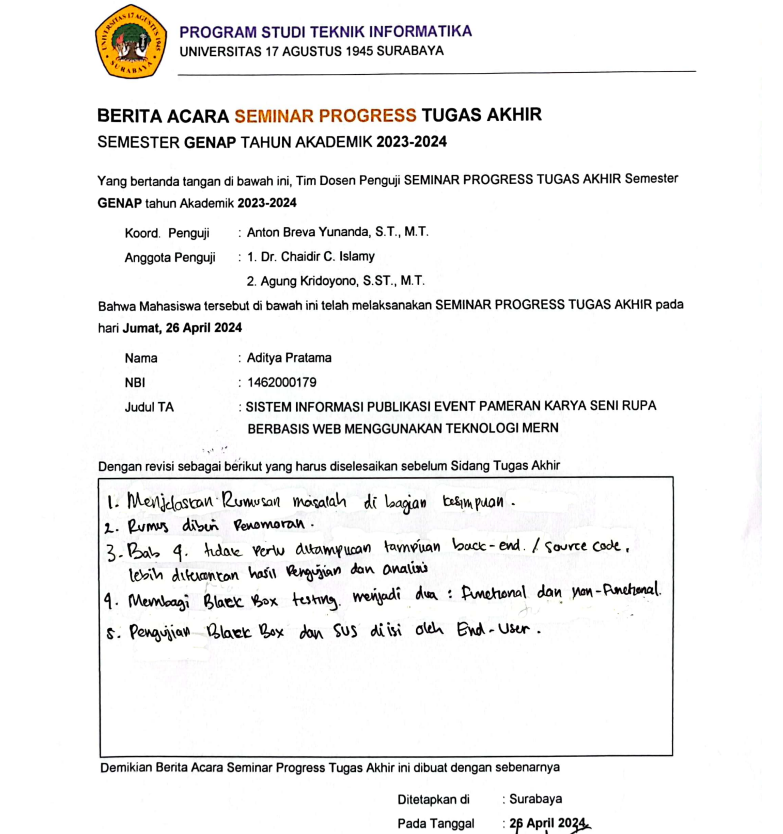 UNIVERSITAS 17 AGUSTUS 1945
SURABAYA
PROGRAM STUDI TEKNIK INFORMATIKA
UNIVERSITAS 17 AGUSTUS 1945 SURABAYA
BERITA ACARA SEMINAR PROGRESS TUGAS AKHIR
SEMESTER GENAP TAHUN AKADEMIK 2023-2024
Yang bertanda tangan di bawah ini, Tim Dosen Penguji SEMINAR PROGRESS TUGAS AKHIR Semester
GENAP tahun Akademik 2023-2024
Koord. Penguji : Anton Breva Yunanda, S.T., M.T.
Anggota Penguji : 1. Dr. Chaidir C. Islamy
2. Agung Kridoyono, S.ST., M.T.
Bahwa Mahasiswa tersebut di bawah ini telah melaksanakan SEMINAR PROGRESS TUGAS AKHIR pada
hari Jumat, 26 April 2024
Nama : Aditya Pratama
NBI : 1462000179
Judul TA : SISTEM INFORMASI PUBLIKASI EVENT PAMERAN KARYA SENI RUPA
BERBASIS WEB MENGGUNAKAN TEKNOLOGI MERN
Dengan revisi sebagai berikut yang harus diselesaikan sebelum Sidang Tugas Akhir
1. Menjelaskan Rumusan masalah di bagian kesimpulan.
2. Rumus diberi Penomoran.
3. Bab 4. tidak perlu ditampilkan tampilan back-end. / source code,
lebih ditekankan hasil Pengujian dan analisis
4. Membagi Black Box testing. menjadi dua : Functional dan non-Functional.
5. Pengujian Black Box dan SUS diisi oleh End-User.
Demikian Berita Acara Seminar Progress Tugas Akhir ini dibuat dengan sebenarnya
Ditetapkan di : Surabaya
Pada Tanggal : 26 April 2024